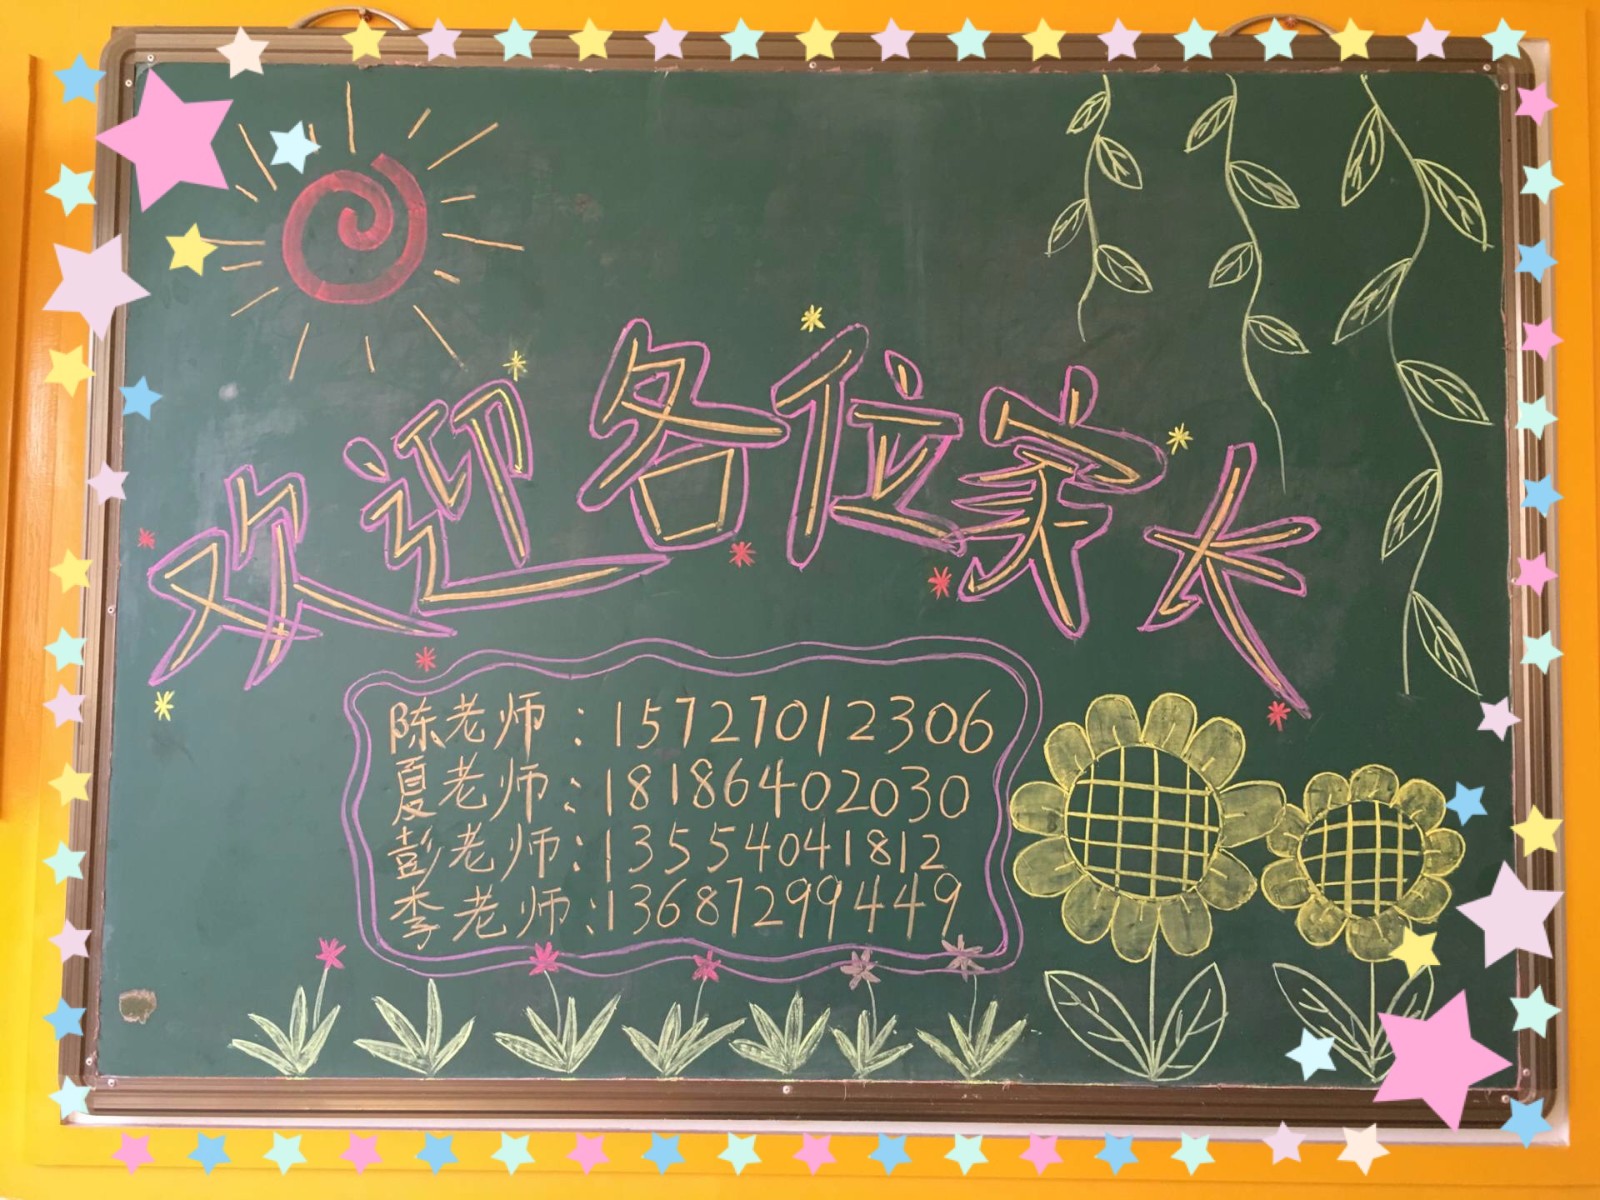 欢迎各位家长
陈老师：15727012306
夏老师：18186402030
彭老师：13554041812
李老师：13687299449